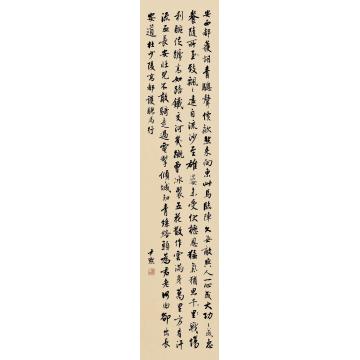 安西都護胡青驄聲價欻然來向東此馬臨陣久無敵與人一心成大功〻成惠
養隨所至飄〻遠自流沙至雄姿未受伏櫪恩猛氣猶思千里戰場
利腕促蹄高如踣鐵交河幾蹴曾冰裂五花散作雲滿身萬里方看汗
流血長安壯兒不敢騎走過電掣傾城知青絲絡頭為君老何由卻出長
安道 杜少陵高都護驄馬行
尹默